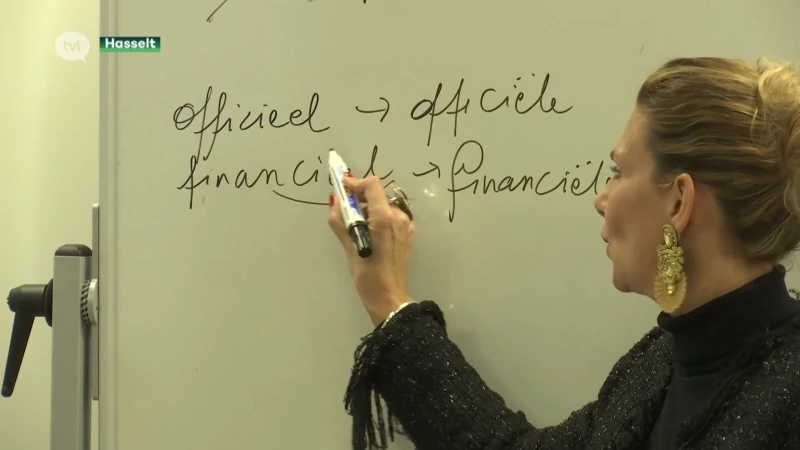 tvl
Hasselt
officieel → officiële
financieel → financiële